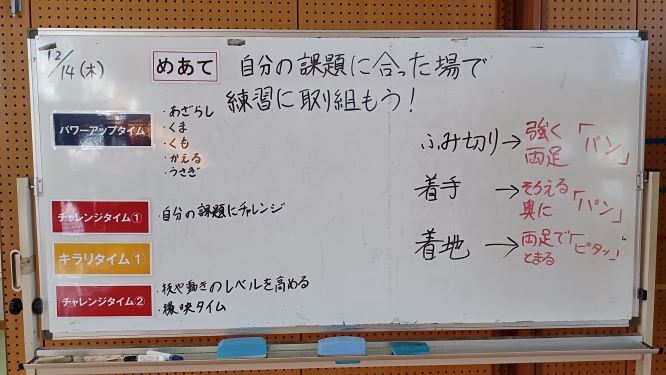 12/14(木)
めあて
自分の課題に合った場で
練習に取り組もう!
パワーアップタイム
・あざらし
・くま
・くも
・かえる
・うさぎ
チャレンジタイム①
・自分の課題にチャレンジ
キラリタイム①
チャレンジタイム②
・技や動きのレベルを高める
・撮映タイム
ふみ切り→強く「パン」
両足
着手→そろえる「パン」
奥に
着地→両足で「ピタッ」
とまる